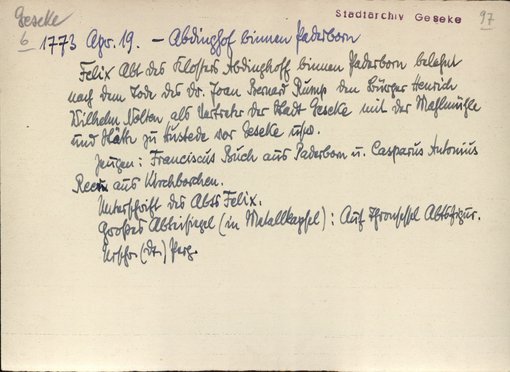 Geseke
Stadtarchiv Geseke
97
6
1773 Apr. 19. – Abdinghof binnen Paderborn
Felix Abt des Klosters Abdinghoff binnen Paderborn belehnt
nach dem Tode des Dr. Joan Bernard Rump den Bürger Henrich
Wilhelm Nolten als Vertreter der Stadt Geseke mit der Mahlmühle
und Stätte zu Hustede vor Geseke usw.
Zeugen: Franciscus Buch aus Paderborn u. Casparus Antonius
aus Kirchborchen.
Unterschrift des Abts Felix.
Großes Abteisiegel (in Metallkapsel): Auf Thronsessel Abtsfigur.
Urschr. (dt.) Perg.